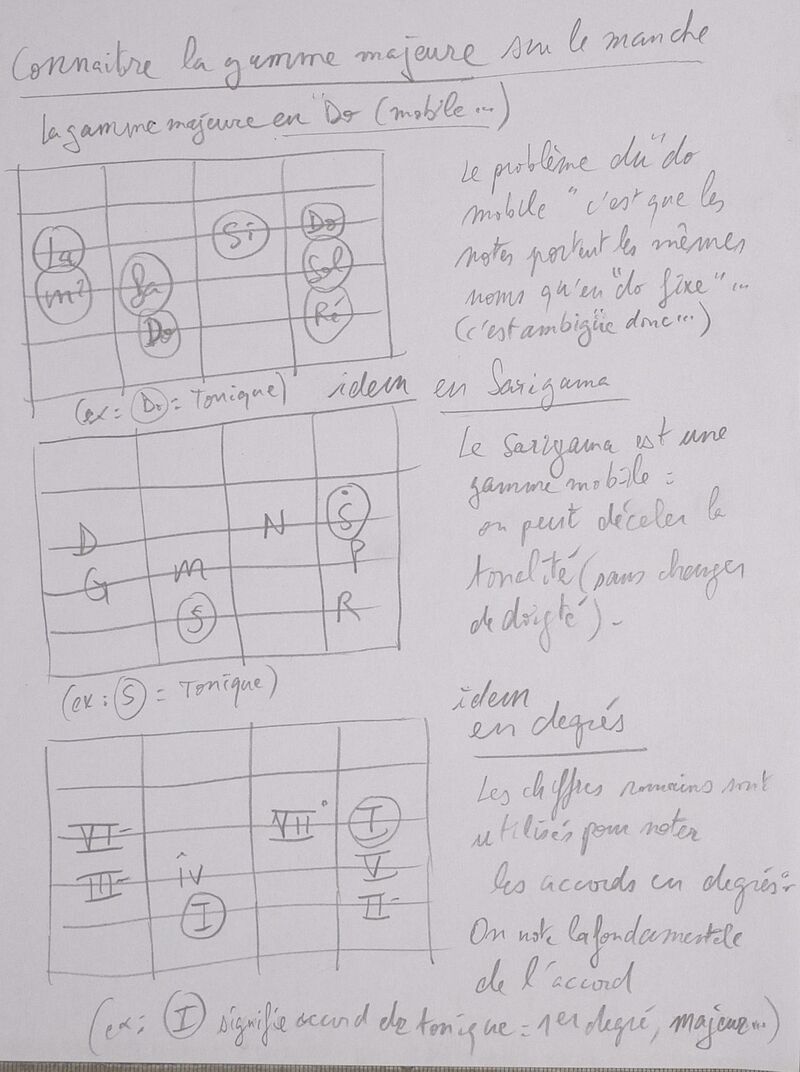 Connaitre la gamme majeure sur le manche
La gamme majeure en "Do (mobile...)
La Si Do
mi Fa Sol
Do Ré
(ex: Do = Tonique)
Le problème du "do
mobile" c'est que les
notes portent les mêmes
noms qu'en "do fixe"...
(c'est ambigüe donc...)
idem en Sarigama
D N Ṡ
G m P
S R
(ex: S = Tonique)
Le Sarigama est une
gamme mobile:
on peut déceler la
tonalité (sans changer
de doigté).
idem
en degrés
VI- VII° I
III- iv V
I II-
Les chiffres romains sont
utilisés pour noter
les accords en degrés.
On note la fondamentale
de l'accord
(ex: I signifie accord de tonique = 1er degré, majeur...)